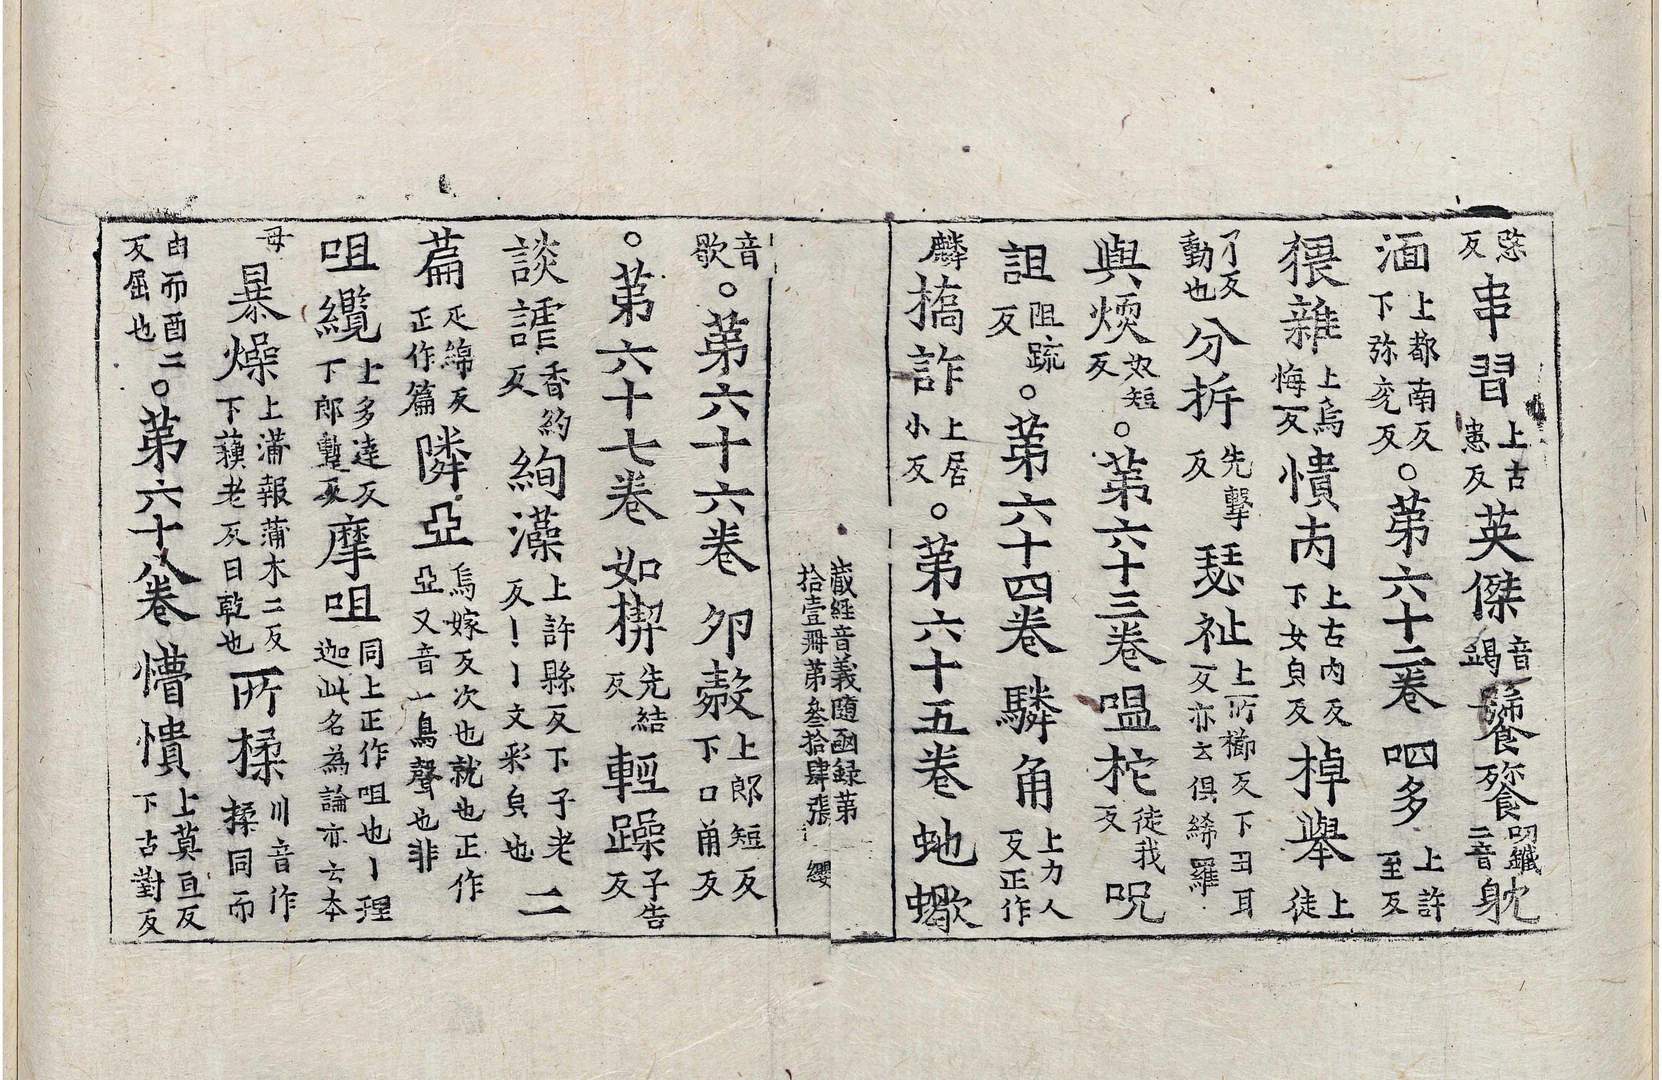 㳷反串習上古患反英傑音竭饕餮叨鐵二音躭
湎上都南反下弥兖反。第六十二卷呬多上許至反
猥雜上烏悔反憒丙上古内反下女皃反掉舉上徒
了反動也分拆先擊反瑟祉上所櫛反下丑耳反亦云俱絺羅
與煗奴短反。第六十三卷嗢柁徒我反呪
詛阻䟽反。第六十四卷驎角上力人反正作
麟撟詐上居小反。第六十五卷虵蠍
藏經音義随函録第拾壹冊第叁拾肆張 纓
音歇。第六十六卷卵㲉上郎短反下口角反
。第六十七卷如楔先結反輕躁子告反
談謔香約反絢藻上許縣反下子老反丨丨文彩皃也二
萹疋綿反正作篇隣亞烏嫁反次也就也正作亞又音一鳥聲也非
呾纜上多達反下郎蹔反摩呾同上正作呾也丨理迦此名為論亦云本
母暴燥上蒲報蒲木二反下蘓老反日乾也所揉川音作揉同而
由而酉二反屈也。第六十八卷懵憒上莫亘反下古對反